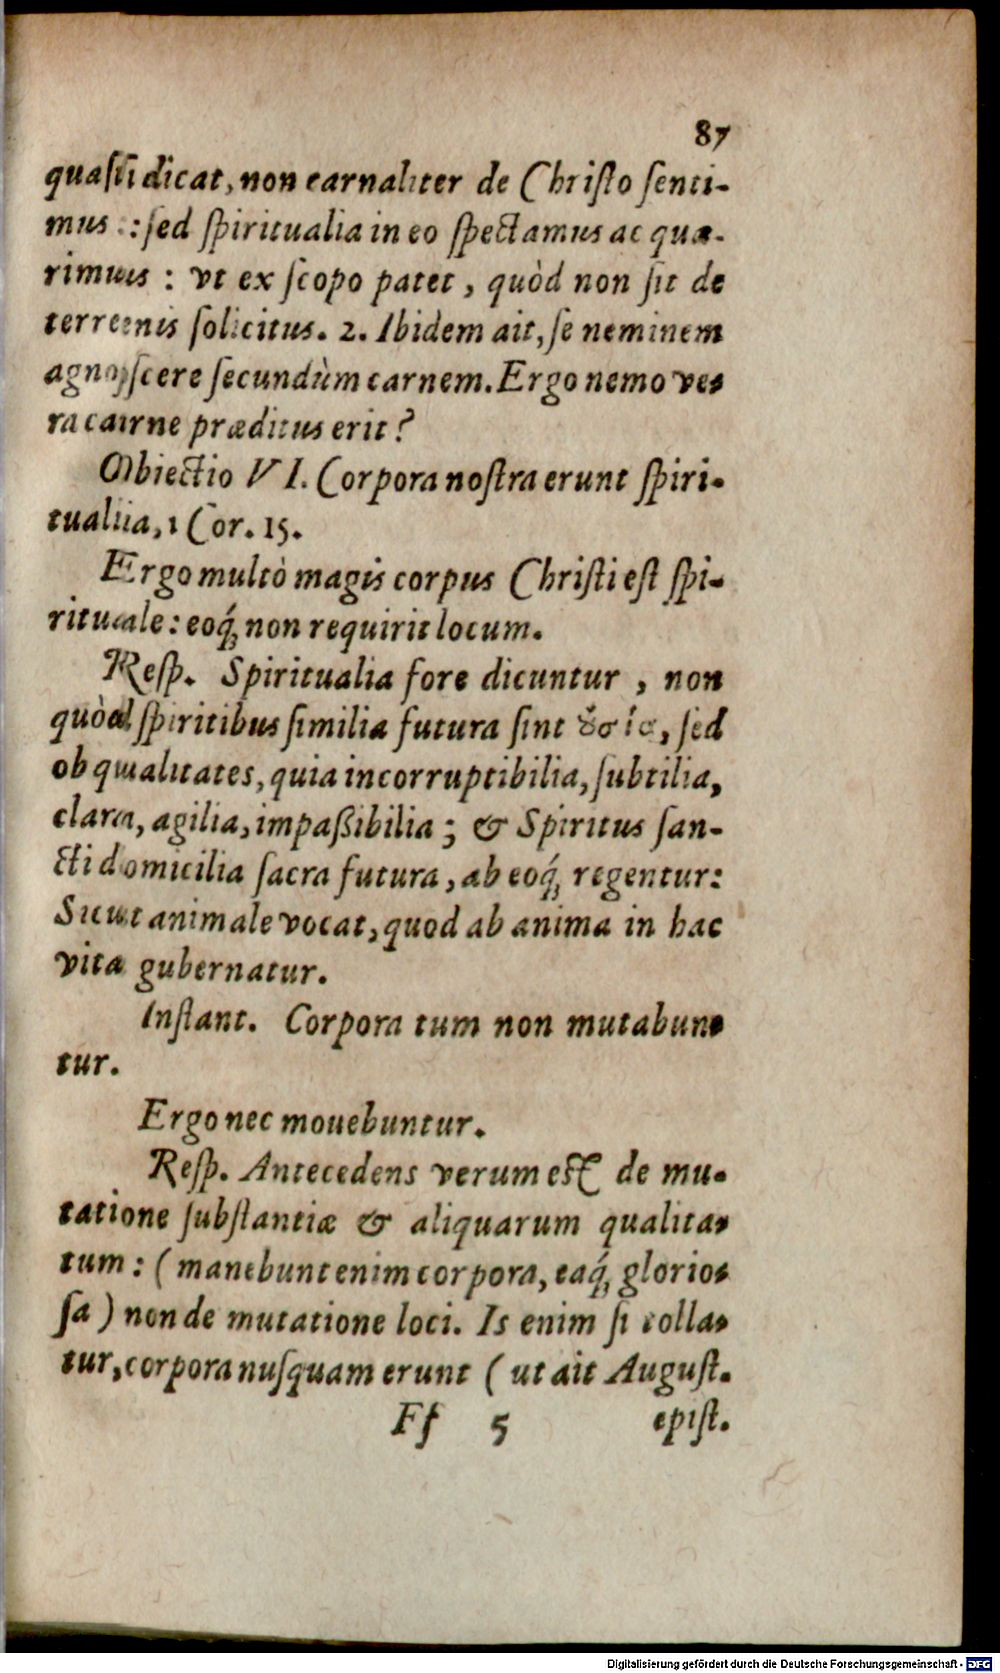 87
quaſi dicat, non carnaliter de Chriſto ſenti-
mus : ſed ſpiritualia in eo ſpectamus ac quæ-
rimus : vt ex ſcopo patet, quòd non ſit de
terrenis ſolicitus. 2. Ibidem ait, ſe neminem
agnoſcere ſecundùm carnem. Ergo nemo ve-
ra carne præditus erit?
Obiectio VI. Corpora noſtra erunt ſpiri-
tualia, 1 Cor. 15.
Ergo multò magis corpus Chriſti eſt ſpi-
rituale: eoq́; non requirit locum.
Reſp. Spiritualia fore dicuntur, non
quòd ſpiritibus ſimilia futura ſint οὐσίᾳ, ſed
ob qualitates, quia incorruptibilia, ſubtilia,
clara, agilia, impaßibilia; & Spiritus ſan-
cti domicilia ſacra futura, ab eoq́; regentur:
Sicut animale vocat, quod ab anima in hac
vita gubernatur.
Inſtant. Corpora tum non mutabun-
tur.
Ergo nec mouebuntur.
Reſp. Antecedens verum eſt de mu-
tatione ſubſtantiæ & aliquarum qualita-
tum: (manebunt enim corpora, eaq́; glorio-
ſa) non de mutatione loci. Is enim ſi tolla-
tur, corpora nuſquam erunt (ut ait Auguſt.
Ff 5 epiſt.
Digitalisierung gefördert durch die Deutsche Forschungsgemeinschaft - DFG